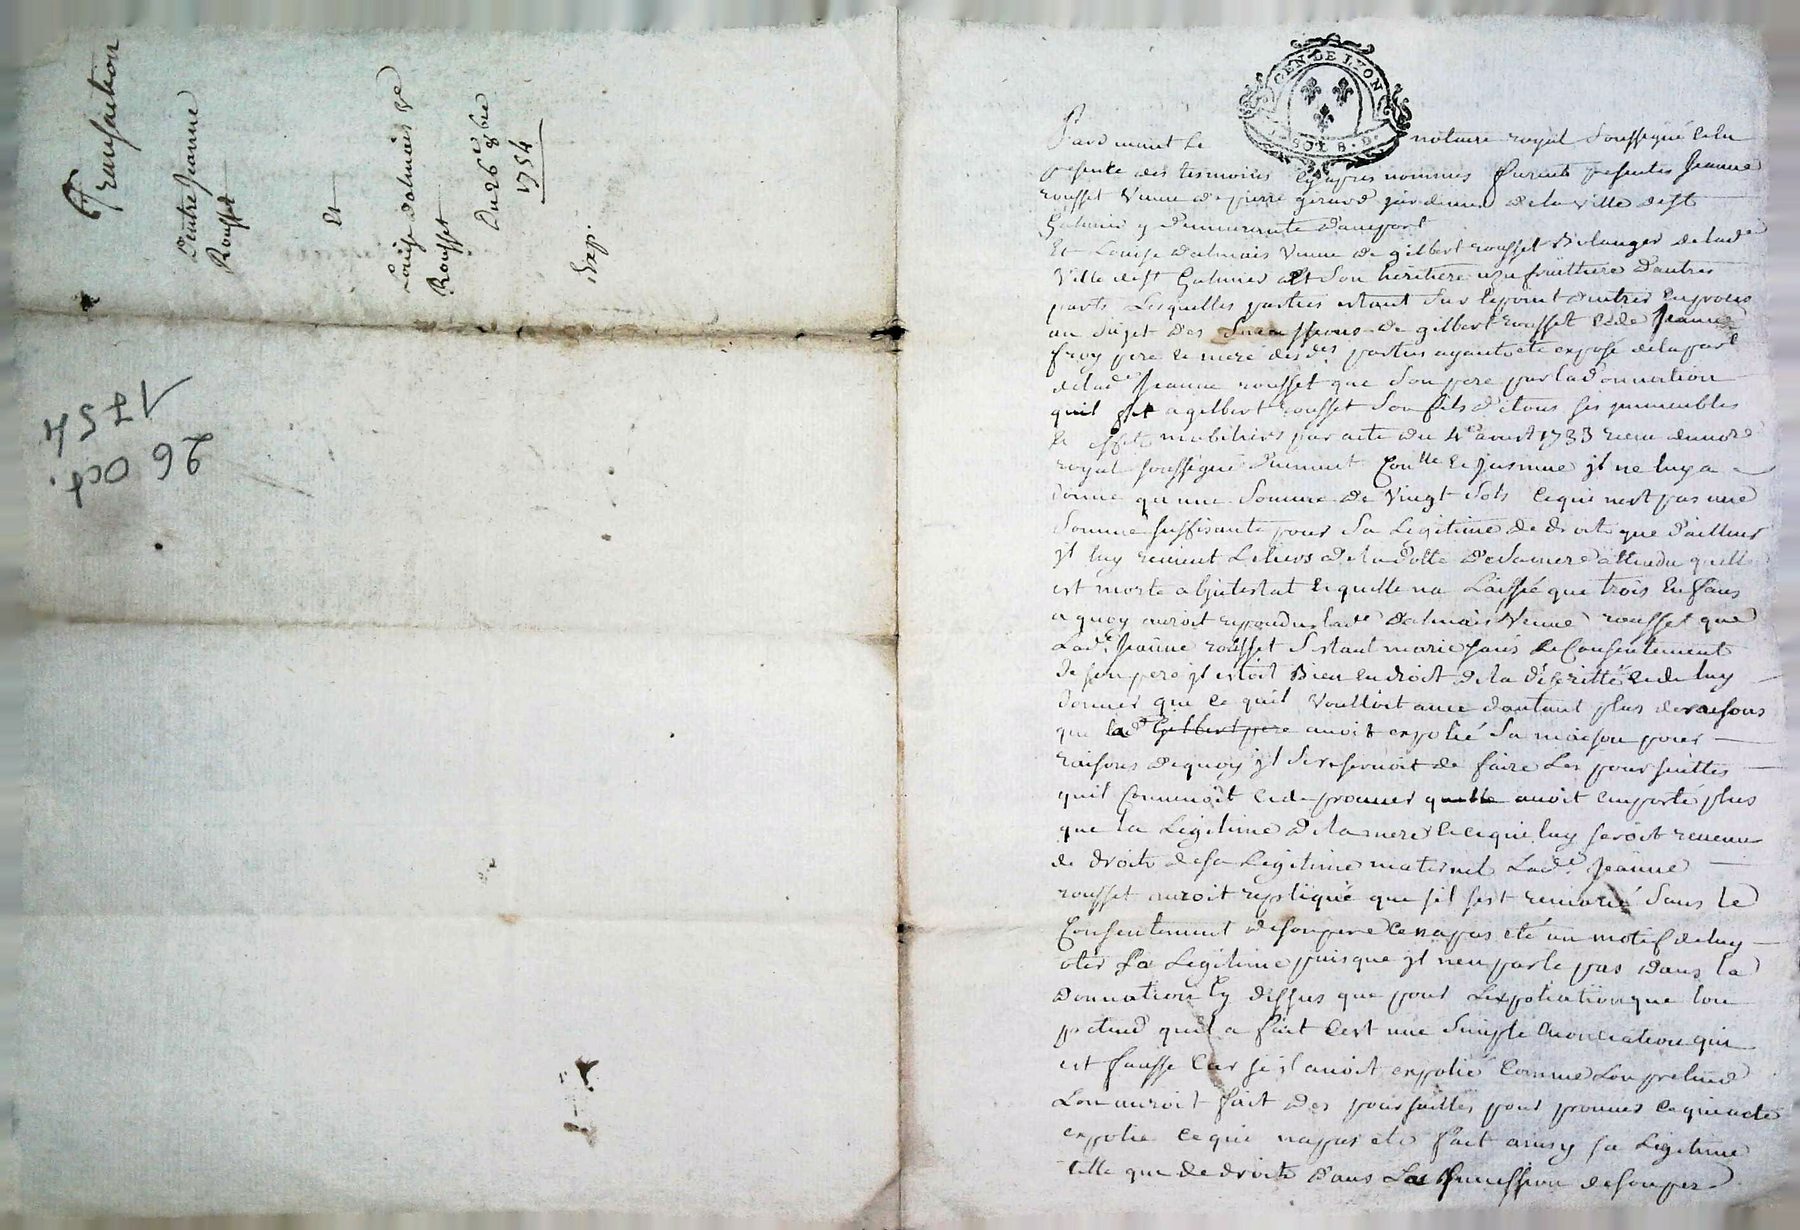 Transaction
D'entre Jeanne
Rousset
Et
Louise Dalmais Ve
Rousset
Du 26e 8bre
1754
Exp.
26 oct.
1754
GEN. DE LYON
SOL 8. D.
Pardevant Le notaire royal soussigné & en
presence des tesmoins cy apres nommés furent presentes Jeanne
rousset veuve de pierre girard jardinier de la ville de st
Galmier y demeurante d'une part
Et Louise Dalmais veuve de gilbert rousset Bolanger de lade
ville de st Galmier et son heritiere usufruittiere d'autres
parts Lesquelles parties estant sur le point d'entrer en procès
au sujet des successions de gilbert rousset & de Jeanne
froy pere & mere desdes parties ayant eté exposé de la part
de lade Jeanne rousset que son pere par la donnation
quil fit a gilbert rousset son fils de tous ses immeubles
& effets mobiliers par acte du 4e avril 1733 recu du nore
royal soussigné duement Conllé & jnsinué jl ne luy a
donné qu'une somme de vingt sols ce qui nest pas une
somme suffisante pour sa Legitime de droit que d'ailleurs
jl luy revient Le tiers de la dotte de sa mere attendu quelle
est morte abjntestat & quelle na Laissé que trois Enfans
a quoy auroit repondu lade Dalmais veuve rousset que
Lade Jeanne rousset s'estant mariée sans le Consentement
de son pere jl estoit Bien en droit de la déseritter & de luy
donner que ce quil voulloit avec d'autant plus de raisons
que lade Gilbert pere avoit expolié sa maison pour
raisons de quoy jl se reservoit de faire Les poursuittes
quil Convenoit & de prouver quelle avoit emporté plus
que la Legitime de la mere & ce qui luy seroit revenu
de droits de sa Legitime maternel Lade Jeanne
rousset auroit repliqué que sil sest remarié sans le
Consentement de son pere ce na pas eté un motif de luy
oter sa Legitime puisque jl nen parle pas dans la
donnation cy dessus que pour Lexpoliation que lon
pretend quil a fait Cest une simple enonciation qui
est fausse Car si jl avoit expolié Comme Lon pretend
Lon auroit fait des poursuittes pour prouver ce qui a eté
expolié ce qui na pas eté fait ainsy sa Legitime
telle que de droits dans La succession de son pere